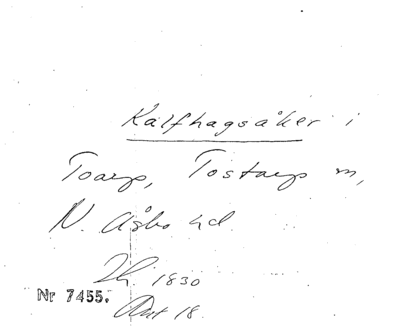 Kalfhagsåker i
Toarp, Tostarp m,
N. Åsbo hd.
Hj. 1830
Nr 7455.
Akt 18.